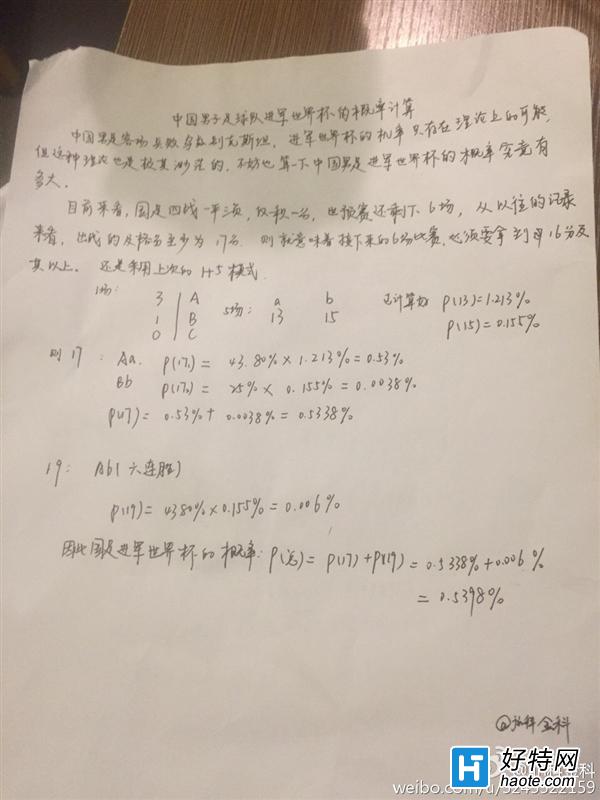 中国男子足球队进军世界杯的概率计算
中国男足客场负于乌兹别克斯坦，进军世界杯的机率只存在理论上的可能，
但这种理论也是极其渺茫的，不妨也算一下中国男足进军世界杯的概率究竟有
多大。
目前来看，国足四战一平三负，仅积一分，也预赛还剩下6场，从以往的记录
来看，出线的及格分至少为17分。则就意味着接下来的6场比赛，必须要拿到16分及
其以上。还是采用上次的1+5模式.
1场: 3 A 5场: a b 已计算好 P(13)=1.213%
1 B 13 15 P(15)=0.155%
0 C
则17: Aa. P(17)= 43.80%×1.213%=0.53%
Bb P(17)= 25%×0.155%=0.0038%
P(17)= 0.53%+0.0038%=0.5338%
19: Ab(六连胜)
P(19)=43.80%×0.155%=0.006%
因此国足进军世界杯的概率:P(总)=P(17)+P(19)=0.5338%+0.006%
=0.5398%
好特网
haote.com
weibo.com/u/5245522159